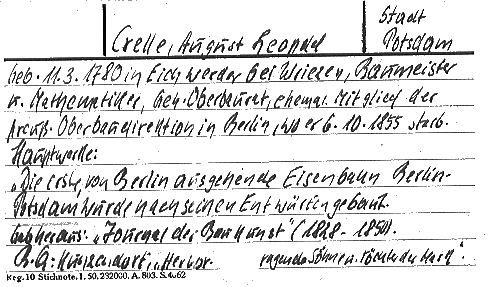 Crelle, August Leopold
Stadt
Potsdam
geb. 11.3.1780 in Eichwerder bei Wriezen, Baumeister
u. Mathematiker, Geh. Oberbaurat, ehemal. Mitglied der
Preuß. Oberbaudirektion in Berlin, wo er 6.10.1855 starb.
Hauptwerke:
„Die erste, von Berlin ausgehende Eisenbahn Berlin-
Potsdam wurde nach seinen Entwürfen gebaut.
Gab heraus: „Journal der Baukunst“ (1828 - 1850).
B.Q: „Hervor- ragende Söhne u. Töchter der Mark“.
Reg. 10 Stichnote. I. 50. 232000. A. 803. S. 4.62